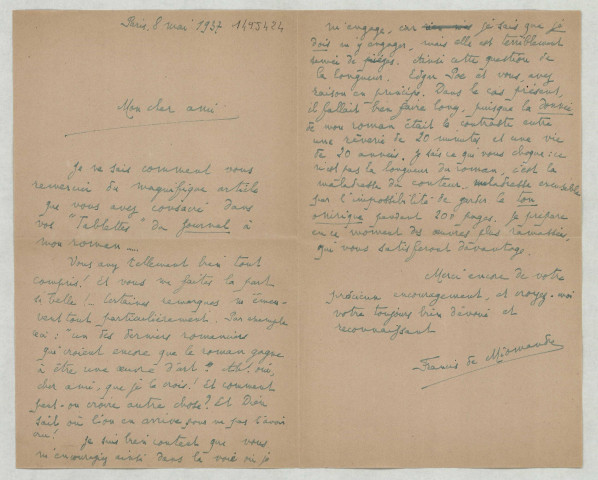 Paris, 8 mai 1937 1145424
Mon cher ami
Je ne sais comment vous
remercier du magnifique article
que vous avez consacré dans
vos "Tablettes" du Journal à
mon roman....
Vous avez tellement bien tout
compris! et vous me faites la part
si belle! Certaines remarques m'émeu-
vent tout particulièrement. Par exemple
: "un des derniers romanciers
qui croient encore que le roman gagne
à être une œuvre d'art". Ah, oui,
cher ami, que je le crois! Et comment
peut-on croire autre chose? Et Dieu
sait où l'on en arrive pour ne pas l'avoir
Je suis très content que vous
m'encouragiez ainsi dans la voie où je
m'engage, car je sais que je
dois m'y engager, mais elle est terriblement
semée de pièges. Ainsi cette question de
la longueur. Edgar Poe et vous, avez
raison en principe. Dans le cas présent,
il fallait bien faire long, puisque la donnée
de mon roman était le contraste entre
une rêverie de 20 minutes et une vie
de 20 années. Je sais ce qui vous choque: ce
n'est pas la longueur du roman, c'est la
maladresse du conteur, maladresse excusable
par l'impossibilité de garder le ton
onirique pendant 200 pages. Je prépare
en ce moment des œuvres plus ramassées,
qui vous satisferont davantage.
Merci encore de votre
précieux encouragement, et croyez-moi
votre toujours bien dévoué et
reconnaissant
Francis de Miomandre